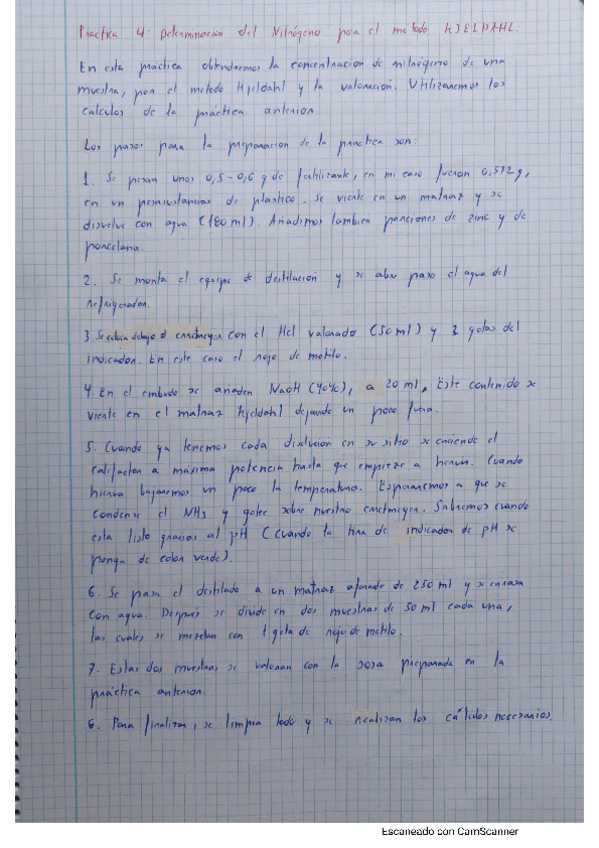 Práctica 4: Determinación del Nitrógeno por el método KJELDAHL.
En esta práctica obtendremos la concentración de nitrógeno de una
muestra, por el metodo Kjeldahl y la valoración. Utilizaremos los
calculos de la práctica anterior.
Los pasos para la preparación de la practica son:
1. Se pesan unos 0,5-0,6 g de fertilizante, en mi caso fueron 0,572g,
en un pesasustancias de plástico. Se vierte en un matraz y se
disuelve con agua (180 ml). Añadimos tambien porciones de zinc y de
porcelana.
2. Se monta el equipo de destilación y se abre paso el agua del
refrigerador.
3. Se coloca debajo el erlenmeyer con el HCl valorado (50 ml) y 3 gotas del
indicador. En este caso el rojo de metilo.
4. En el embudo se añaden NaOH (40%), a 20 ml. Este contenido se
vierte en el matraz Kjeldahl dejando un poco fuera.
5. Cuando ya tenemos cada disolución en su sitio se enciende el
calefactor a máxima potencia hasta que empieze a hervir. Cuando
hierva bajaremos un poco la temperatura. Esperaremos a que se
condense el NH3 y gotee sobre nuestro erlenmeyer. Sabremos cuando
esta listo gracias al pH (cuando la tira de indicador de pH se
ponga de color verde).
6. Se pasa el destilado a un matraz aforado de 250 ml y se enrasa
con agua. Después se divide en dos muestras de 50 ml cada una,
las cuales se mezclan con 1 gota de rojo de metilo.
7. Estas dos muestras se valoran con la sosa preparada en la
práctica anterior.
8. Para finalizar, se limpia todo y se realizan los cálculos necesarios.
Escaneado con CamScanner